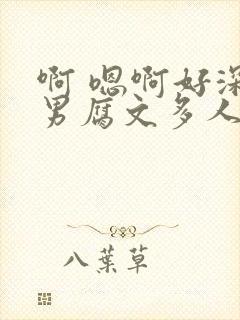 啊 嗯啊好深
男腐文多人
八葉草